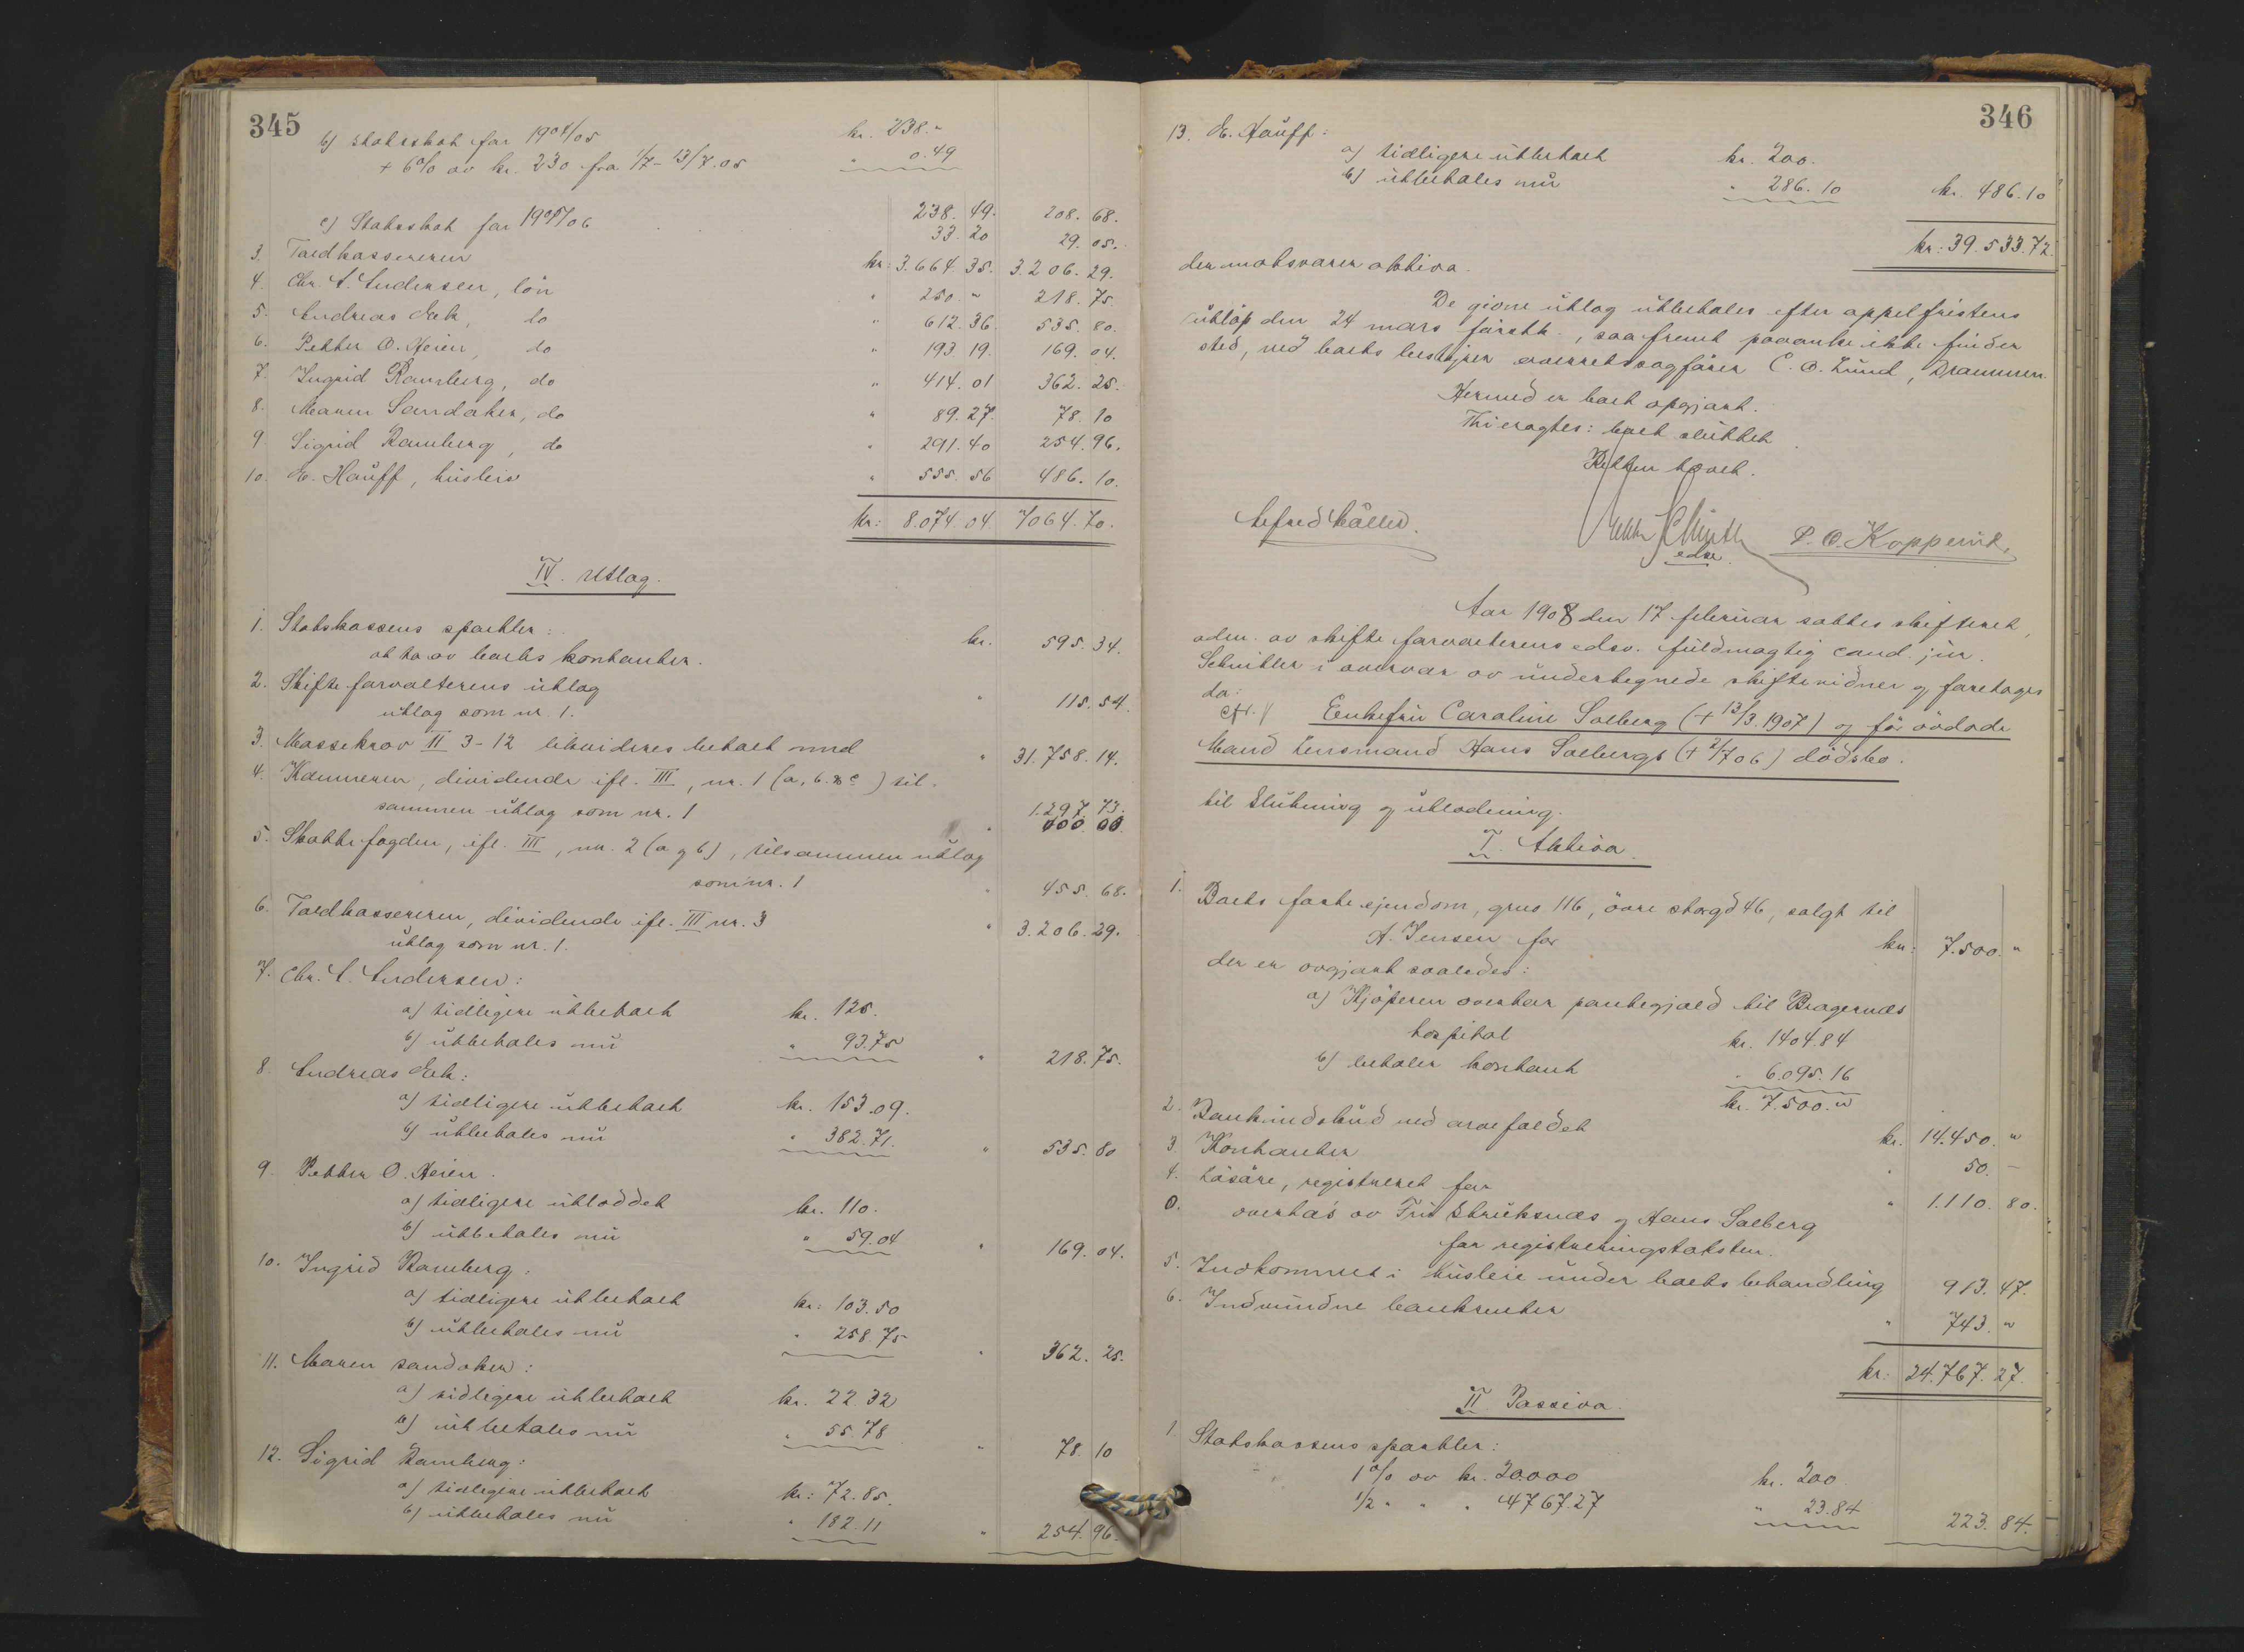 345
b) statsskat for 1904/05 kr. 238."
+ 6% av kr. 230 fra 1/7 - 13/7.05 " 0.49
238.49. 208.68.
c) Statsskat for 1905/06 33.20 29.05.
3. Toldkassereren kr: 3.664.35. 3.206.29.
4. Chr. A. Andersen, lön " 250." 218.75.
5. Andreas Eek, do " 612.36. 535.80.
6. Petter O. Heien, do " 193.19. 169.04.
7. Ingrid Ramberg, do " 414.01 362.25.
8. Maren Sandaker, do " 89.27. 78.10
9. Sigrid Ramberg, do " 291.40 254.96.
10. E. Hauff, husleie " 555.56 486.10.
kr: 8.074.04 7064.70.
IV. Utlag.
1. Statskassens sportler: kr. 595.34.
at ta av boets kontanter.
2. Skifteforvalterens utlag " 115.54.
utlag som nr. 1.
3. Massekrav II 3-12 likvideres betalt med " 31.758.14.
4. Kæmneren, dividende ifl. III, nr. 1 (a, b. & c) til-
sammen utlag som nr. 1 1.297.73.
" 000.00.
5. Skattefogden, ifl. III, nr. 2 (a og b), tilsammen utlag
som nr. 1 " 455.68.
6. Toldkassereren, dividende ifl. III nr. 3 " 3.206.29.
utlag som nr. 1.
7. Chr. A. Andersen:
a) tidligere utbetalt kr. 125.
b) utbetales nu " 93.75 " 218.75.
8. Andreas Eek:
a) tidligere utbetalt kr. 153.09.
b) utbetales nu " 382.71. " 535.80
9. Petter O. Heien.
a) tidligere utloddet kr. 110.
b) utbetales nu " 59.04 " 169.04.
10. Ingrid Ramberg:
a) tidligere utbetalt kr: 103.50
b) utbetales nu " 258.75 " 362.25.
11. Maren Sandaker:
a) tidligere utbetalt kr. 22.32
b) utbetales nu " 55.78 " 78.10
12. Sigrid Ramberg:
a) tidligere utbetalt kr: 72.85.
b) utbetales nu " 182.11 " 254.96.
346
13. E. Hauff:
a) tidligere utbetalt kr. 200.
b) utbetales nu " 286.10 kr. 486.10
kr: 39.533.72.
der motsvarer aktiva.
De gjorte utlag utbetales efter appelfristens
utløp den 24 mars førstk., saafremt paaanke ikke finder
sted, ved boets bestyrer overretssagfører C. O. Lund, Drammen.
Hermed er boet opgjort.
Thi eragtes: boet sluttet.
Retten hævet.
Alfred Møller. edsv. P. O. Kopperud.
Aar 1908 den 17 februar sattes skifteret,
adm. av skifteforvalterens edsv. fuldmægtig cand. jur.
Schnitler i overvær av undertegnede skiftevidner og foretoges
da:
Enkefru Caroline Solberg (+ 13/3.1907) og før avdøde
Mand Lensmand Hans Solbergs (+ 2/7 06) dødsbo.
til Slutning og utlodning.
I. Aktiva.
1. Boets faste eiendom, grno 116, øvre storgd 46, solgt til
A. Jensen for kr: 7.500."
der er opgjort saaledes:
a) Kjøperen overtar pantegjæld til Bragernæs
hospital kr. 1404.84
b) betaler kontant " 6.095.16
kr. 7.500."
2. Bankindskud ved arvefaldet kr. 14.450."
3. Kontanter " 50.—
4. Løsøre, registreret for " 1.110.80.
overtas av Fru Struksnæs og Hans Solberg
for registreringstaksten.
5. Indkommet i husleie under boets behandling 913.47.
6. Indvundne bankrenter " 743."
kr: 24.767.27.
II. Passiva.
1. Statskassens sportler:
1% av kr. 20.000 kr. 200.
1/2 " " " 4767.27 " 23.84 223.84.